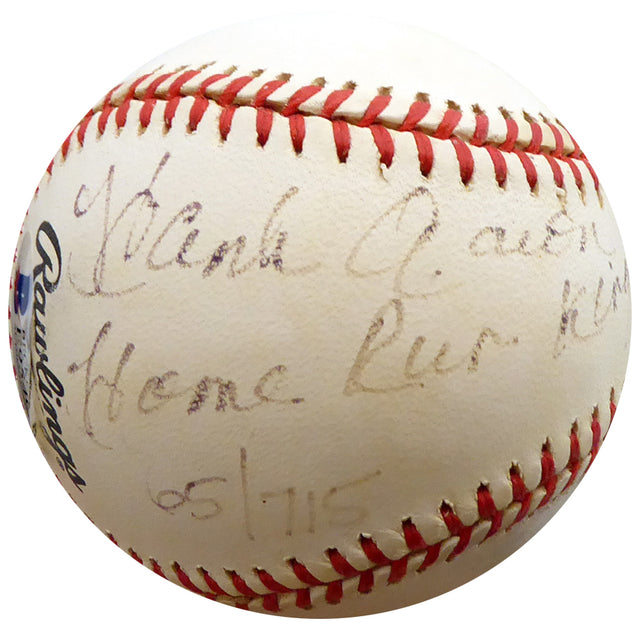 Hank Aaron
Home Run King
65/715
Rawlings